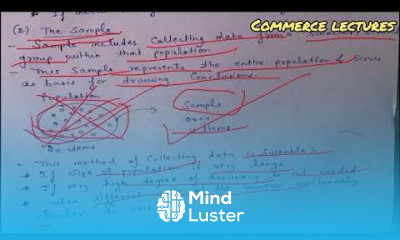 COMMERCE LECTURES
(2) The Sample
- Sample includes collecting data from a
group within that population
- This Sample represents the entire population & serves
as basis for drawing Conclusions.
Population
Sample
20 items
- This method of collecting data is suitable:
If size of population is very large
If very high degree of accuracy is not needed
When different
similar to
Mind
Luster